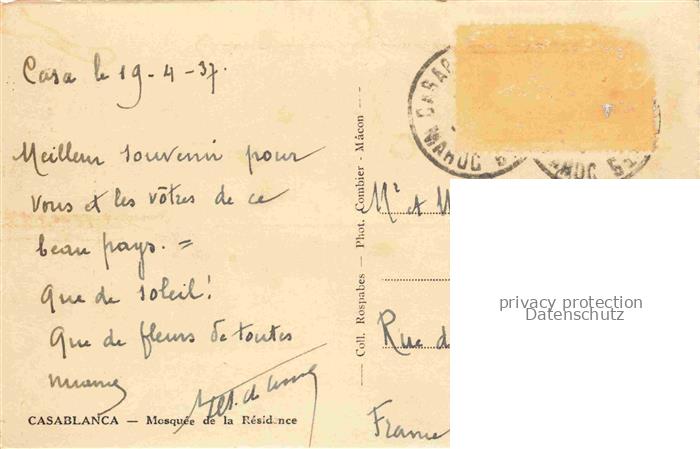 Casa le 19-4-37.
Meilleur souvenir pour
vous et les vôtres de ce
beau pays. =
Que de soleil!
Que de fleurs de toutes
CASABLANCA — Mosquée de la Résidence
Coll. Rospabes — Phot. Combier - Mâcon
MAROC
MAROC
Mr et M
Rue d
France
privacy protection
Datenschutz